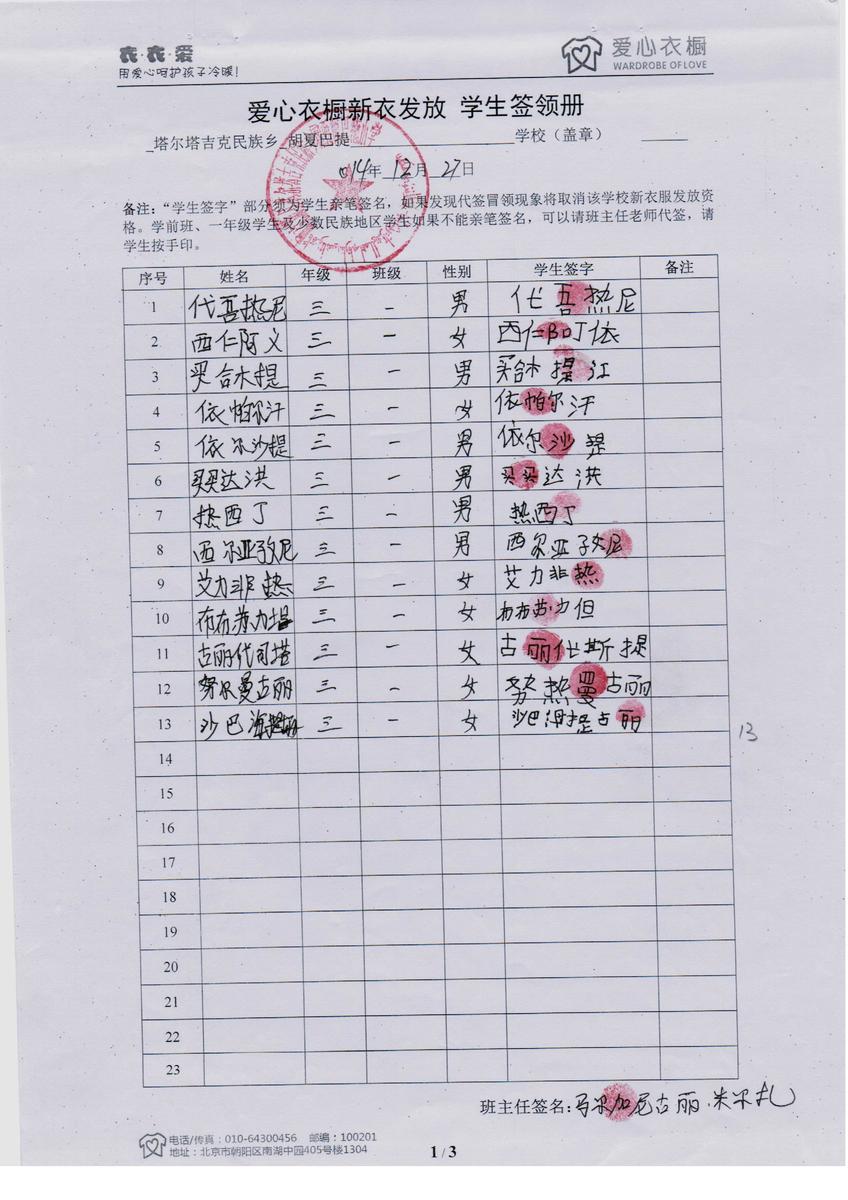 衣·衣·爱
用爱心呵护孩子冷暖！
爱心衣橱
WARDROBE OF LOVE
爱心衣橱新衣发放 学生签领册
塔尔塔吉克民族乡 胡夏巴提 学校（盖章）
014年 12月 27日
备注：“学生签字”部分须为学生亲笔签名，如果发现代签冒领现象将取消该学校新衣服发放资
格。学前班、一年级学生及少数民族地区学生如果不能亲笔签名，可以请班主任老师代签，请
学生按手印。
序号 姓名 年级 班级 性别 学生签字 备注
1 代吾热尼 三 一 男 代吾热尼
2 西仁阿义 三 一 女 西仁阿依
3 买合木提 三 一 男 买合木提江
4 依帕尔汗 三 一 女 依帕尔汗
5 依尔沙提 三 一 男 依尔沙提
6 买买达洪 三 一 男 买买达洪
7 热西丁 三 一 男 热西丁
8 西尔亚孜尼 三 一 男 西尔亚孜尼
9 艾力非热 三 一 女 艾力非热
10 布布苏力提 三 一 女 布布苏力但
11 古丽代司塔 三 一 女 古丽仕斯提
12 努尔曼古丽 三 一 女 努热曼古丽
13 沙巴海提古丽 三 一 女 沙巴海提古丽
13
14
15
16
17
18
19
20
21
22
23
班主任签名：马尔加尼古丽.米尔扎
电话/传真：010-64300456 邮编：100201
地址：北京市朝阳区南湖中园405号楼1304
1 / 3